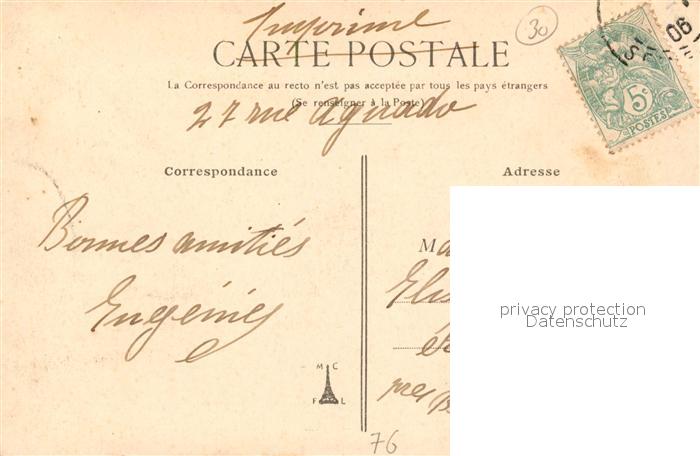 Imprimé
30
CARTE POSTALE
La Correspondance au recto n'est pas acceptée par tous les pays étrangers
(Se renseigner à la Poste)
27 rue Aguado
5c
POSTES
06
Correspondance
Adresse
Bonnes amitiés
Eugénie
M
Elis
privacy protection
Datenschutz
M C
F L
76